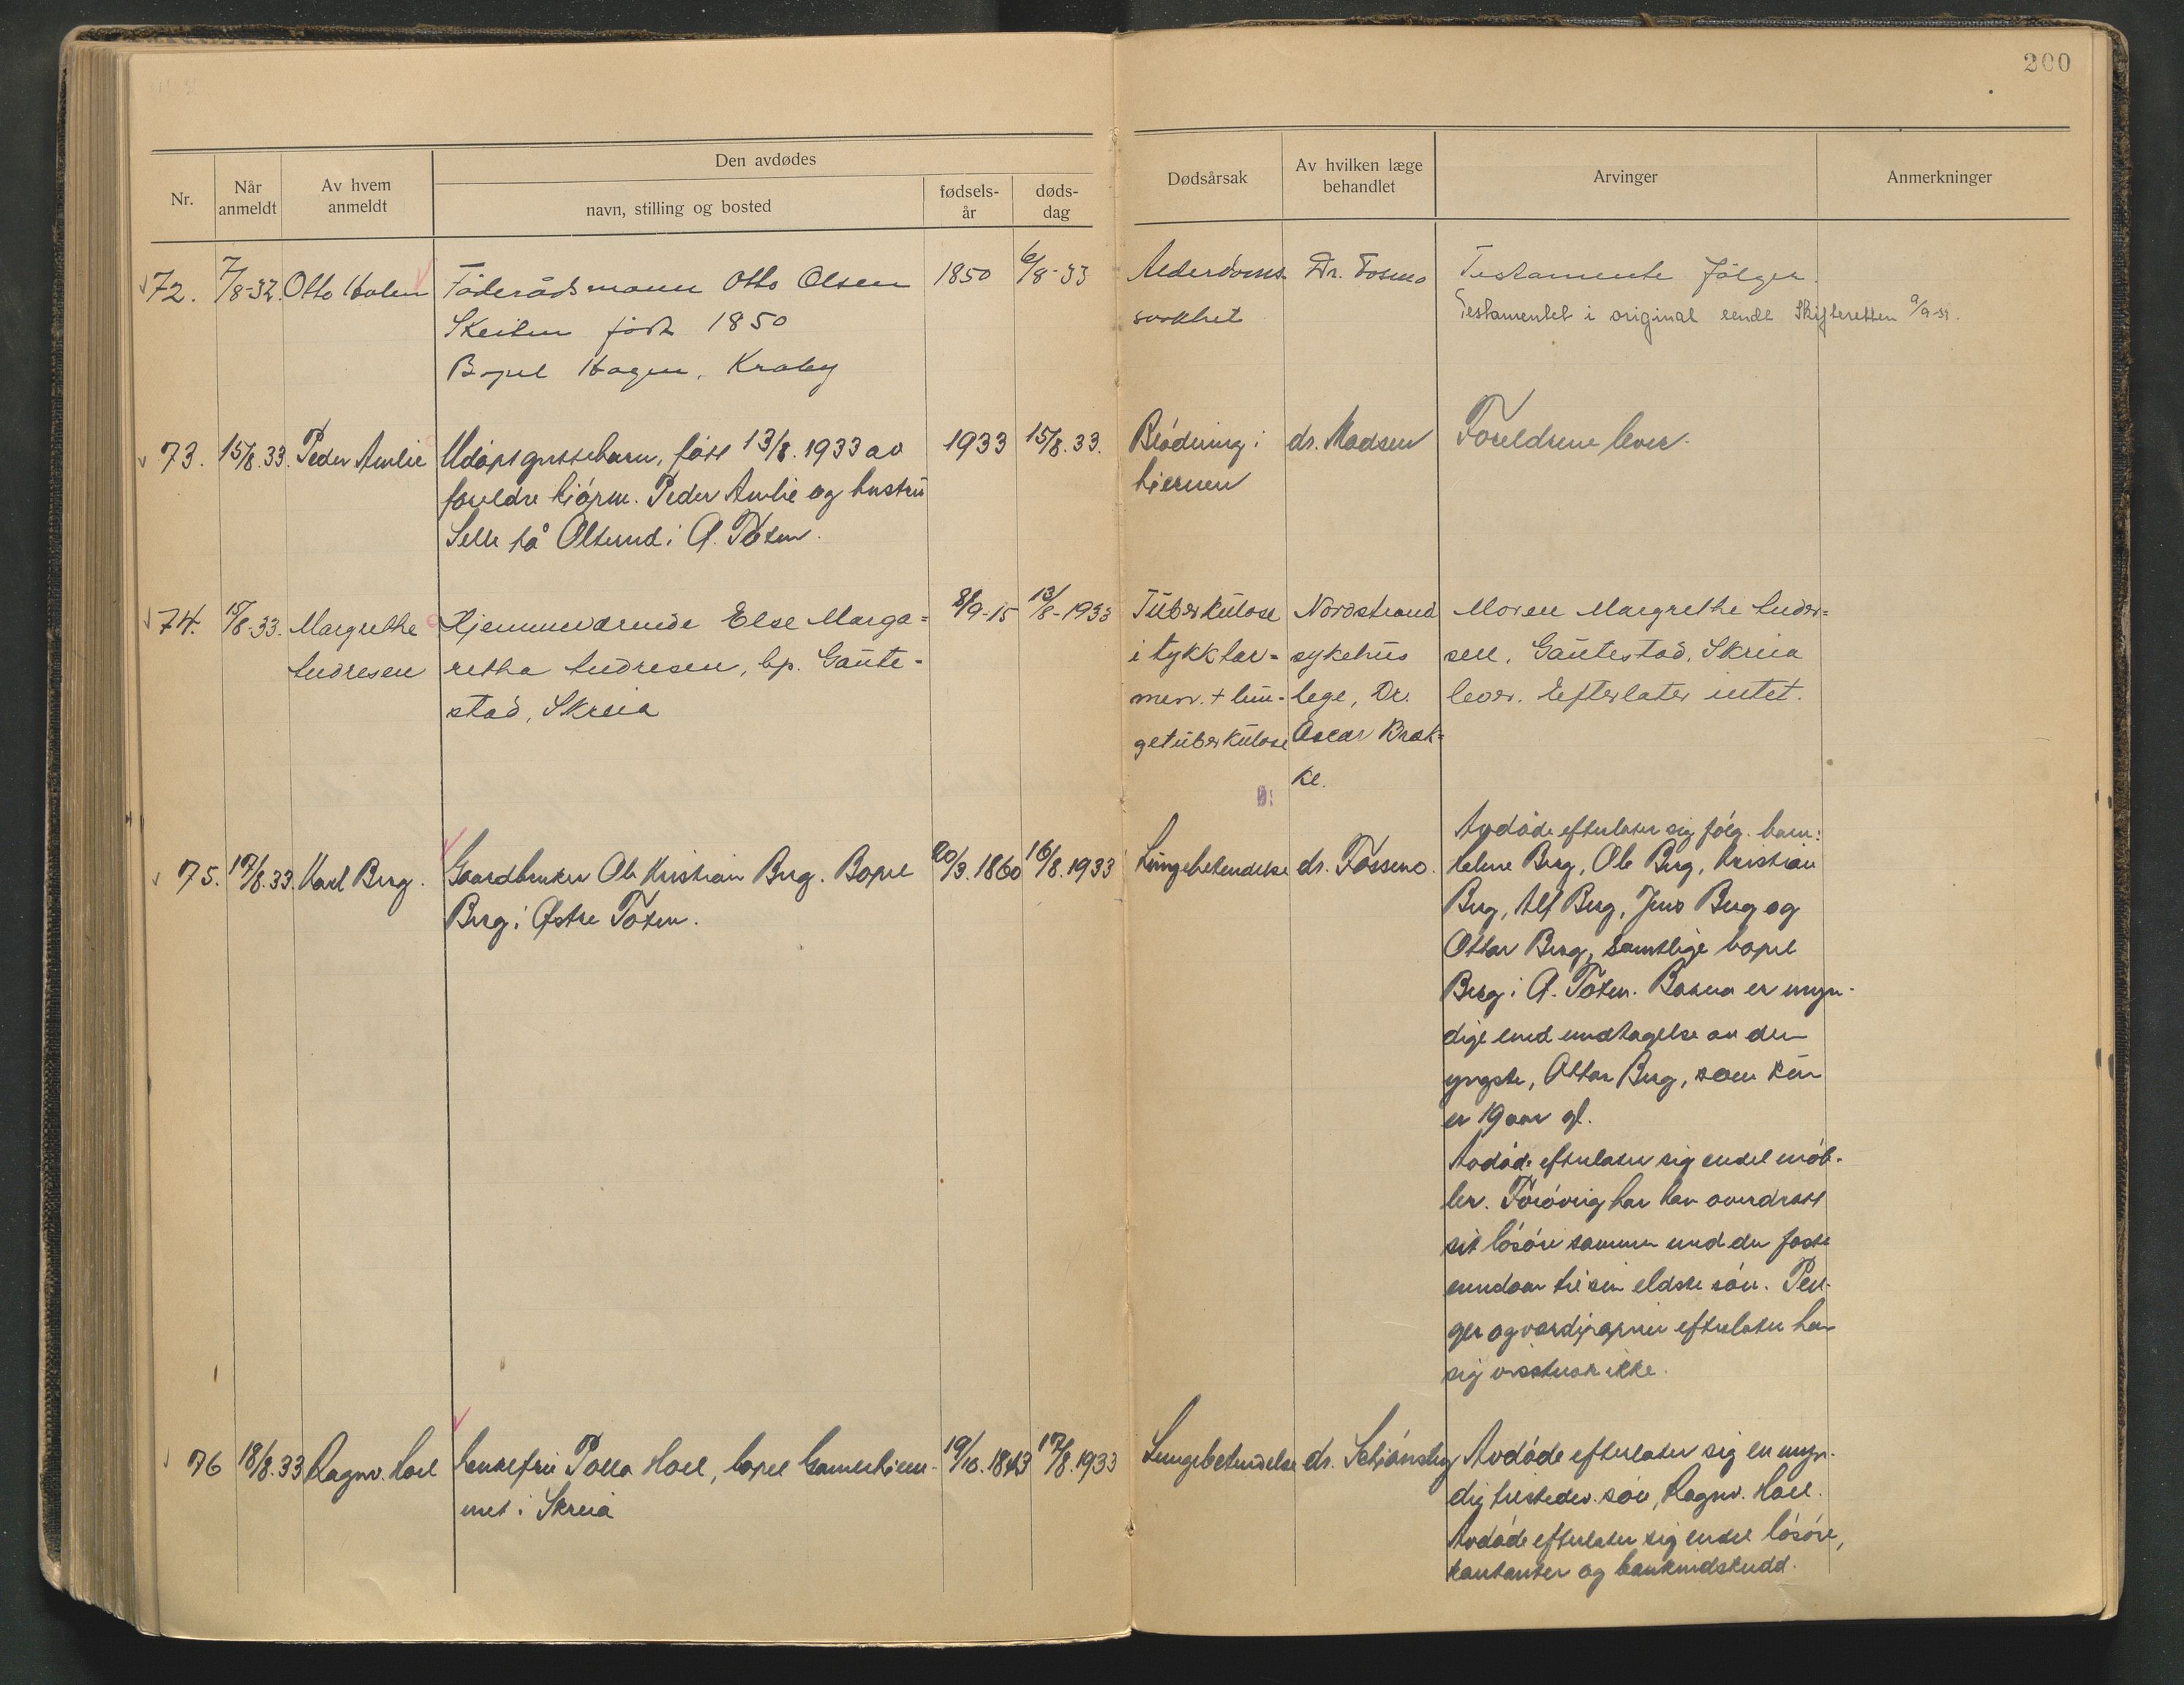 200
Nr.
Når anmeldt
Av hvem anmeldt
Den avdødes
navn, stilling og bosted
fødsels-
år
døds-
dag
Dødsårsak
Av hvilken læge
behandlet
Arvinger
Anmerkninger
72. 7/8-32. Otto Føderådsmann Otto Olsen 1850 6/8-33 Alderdoms- Dr. Fosmo Testamente følger.
født 1850 svakhet Testamentet i original sendt Skifteretten
Bopel Hagen, Kraby
73. 15/8.33. Peder Amlie Udøpt guttebarn, født 13/8.1933 av 1933 15/8.33. Blødning i dr. Madsen Foreldrene lever.
foreldre Peder Amlie og hustru hjernen
i Ø. Toten.
74. 15/8-33. Margrethe Hjemmeværende Else Marga= 8/9-15 13/8-1933 Tuberkulose Nordstrand Moren Margrethe Andre=
Andresen retha Andresen, bp. Gaute- i tykktar= sykehus sen, Gautestad, Skreia
stad, Skreia men. + lun- lege, Dr. lever. Efterlater intet.
getuberkulose Oscar Bræk=
ke.
Avdøde efterlater sig følg. barn:
75. 17/8.33. Karl Berg. Gaardbruker Ole Kristian Berg. Bopel 20/3.1860 16/8.1933 Lungebetendelse dr. Fossmo. Helene Berg, Ole Berg, Kristian
Berg i Østre Toten. Berg, Alf Berg, Jens Berg og
Ottar Berg, samtlige bopel
Berg i Ø. Toten. Barna er myn-
dige med undtagelse av den
yngste, Ottar Berg, som kun
er 19 aar gl.
Avdøde efterlater sig endel møb-
ler. Forøvrig har han overdratt
sit løsøre sammen med den faste
eiendom til sin eldste søn. Pen-
ger og verdipapirer efterlater han
sig visstnok ikke.
76 18/8.33 Ragnv. Hoel Enkefru Hoel, bopel Gamlehjem- 19/10.1843 17/8.1933 Lungebetendelse dr. Schiønsby Avdøde efterlater sig en myn-
met i Skreia dig tilstedev. søn, Ragnv. Hoel.
Avdøde efterlater sig endel løsøre,
kontanter og bankindskudd.